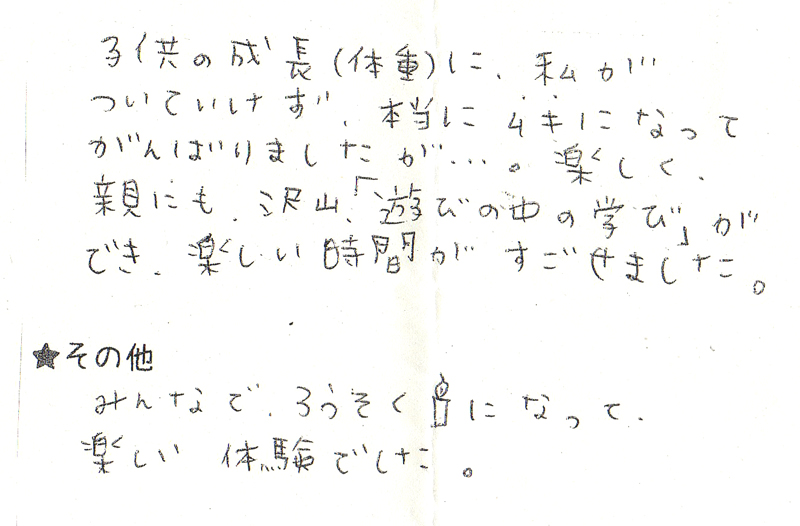 子供の成長(体重)に、私が
ついていけず、本当にムキになって
がんばりましたが…。楽しく、
親にも、沢山、「遊びの中の学び」が
でき、楽しい時間がすごせました。
★その他
みんなで、ろうそくになって、
楽しい体験でした。